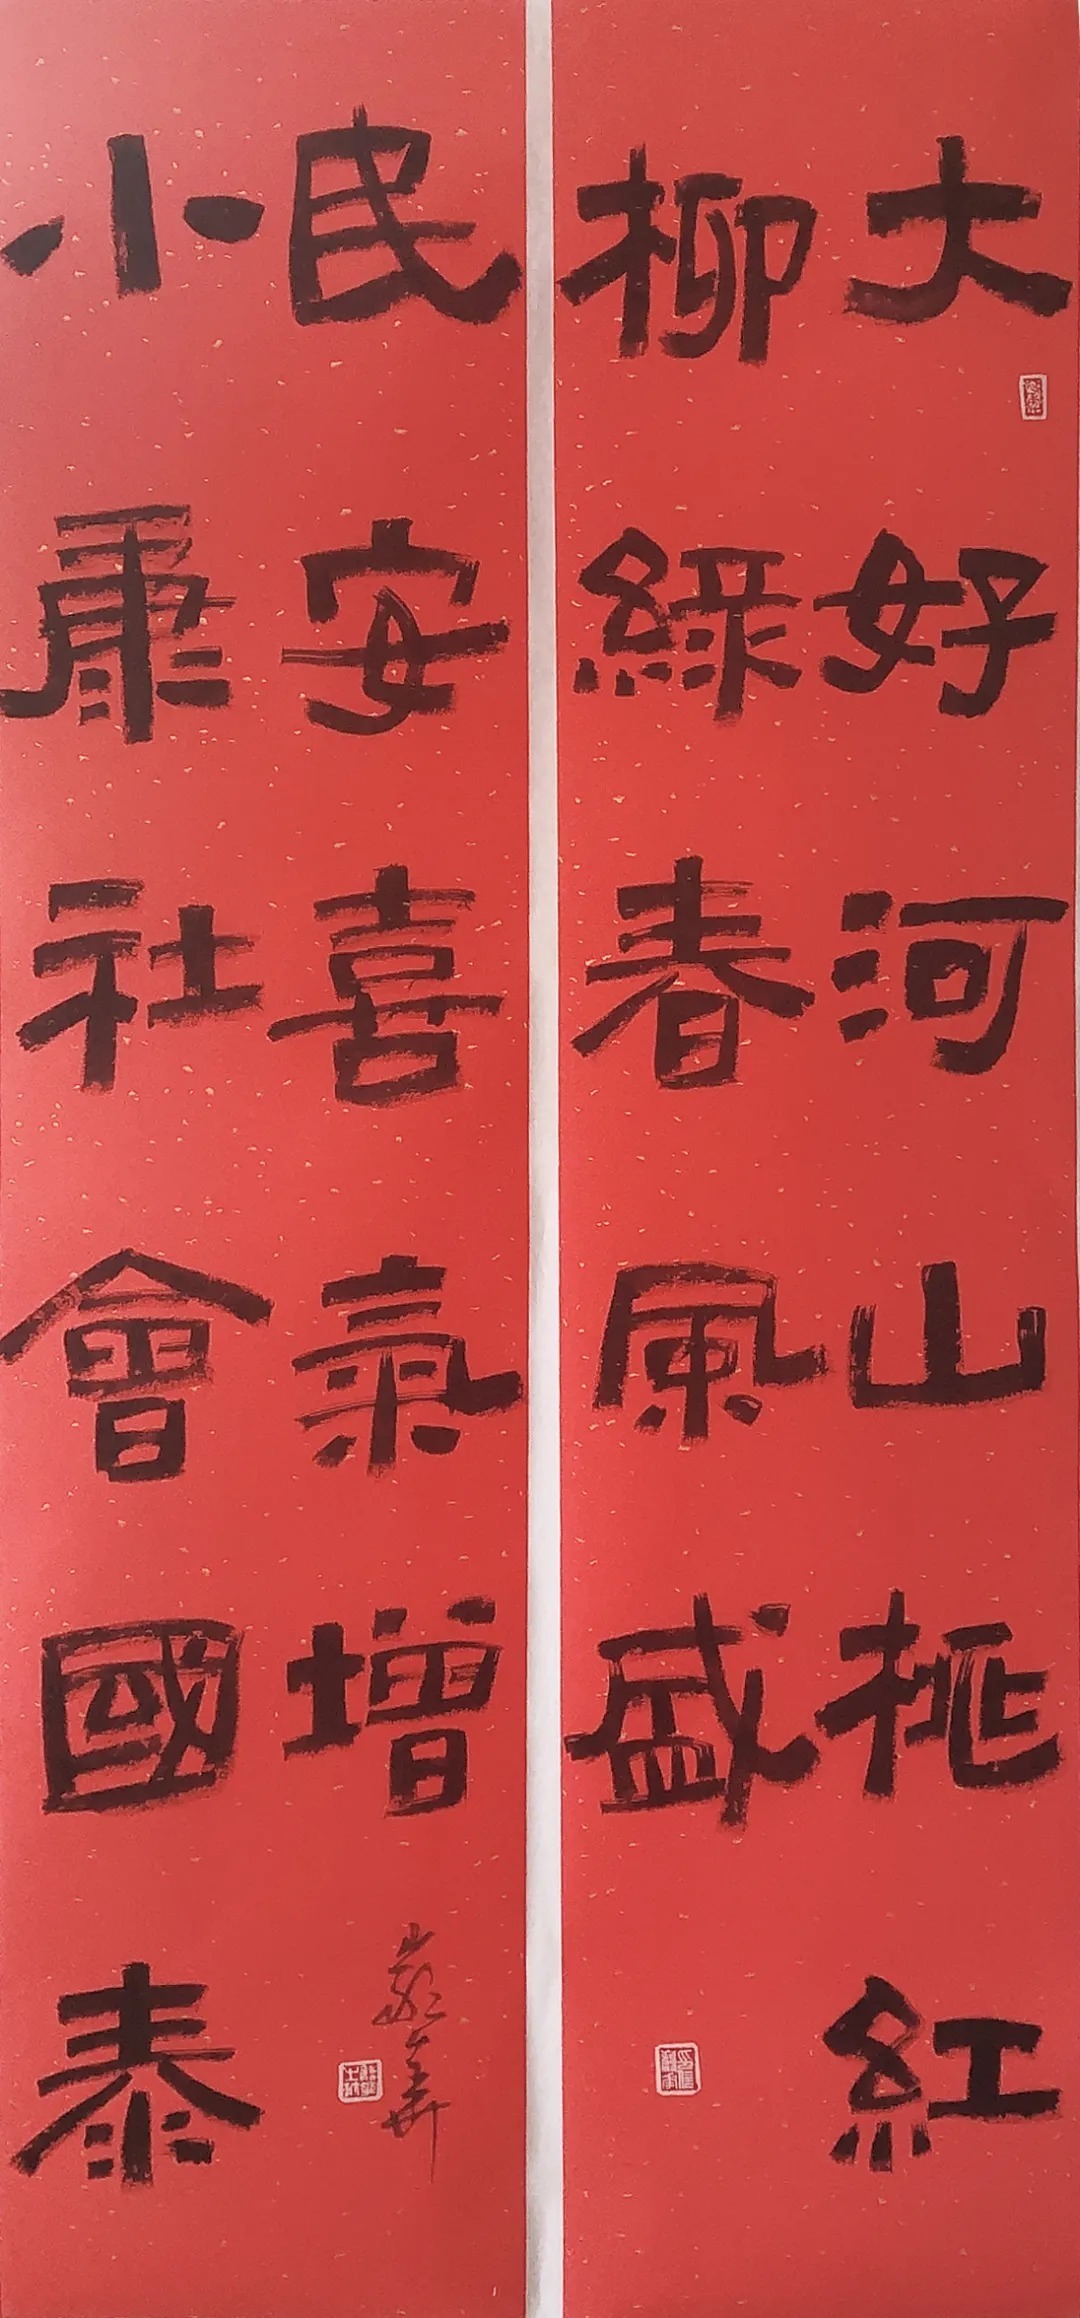 大好河山桃紅
柳綠春風盛
小康社會國泰
民安喜氣增